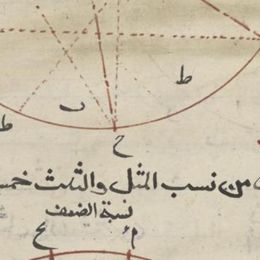 ط
ں
ط
ح
من نسب المثل والثلث خمس
نسبة الضعف
م
ح